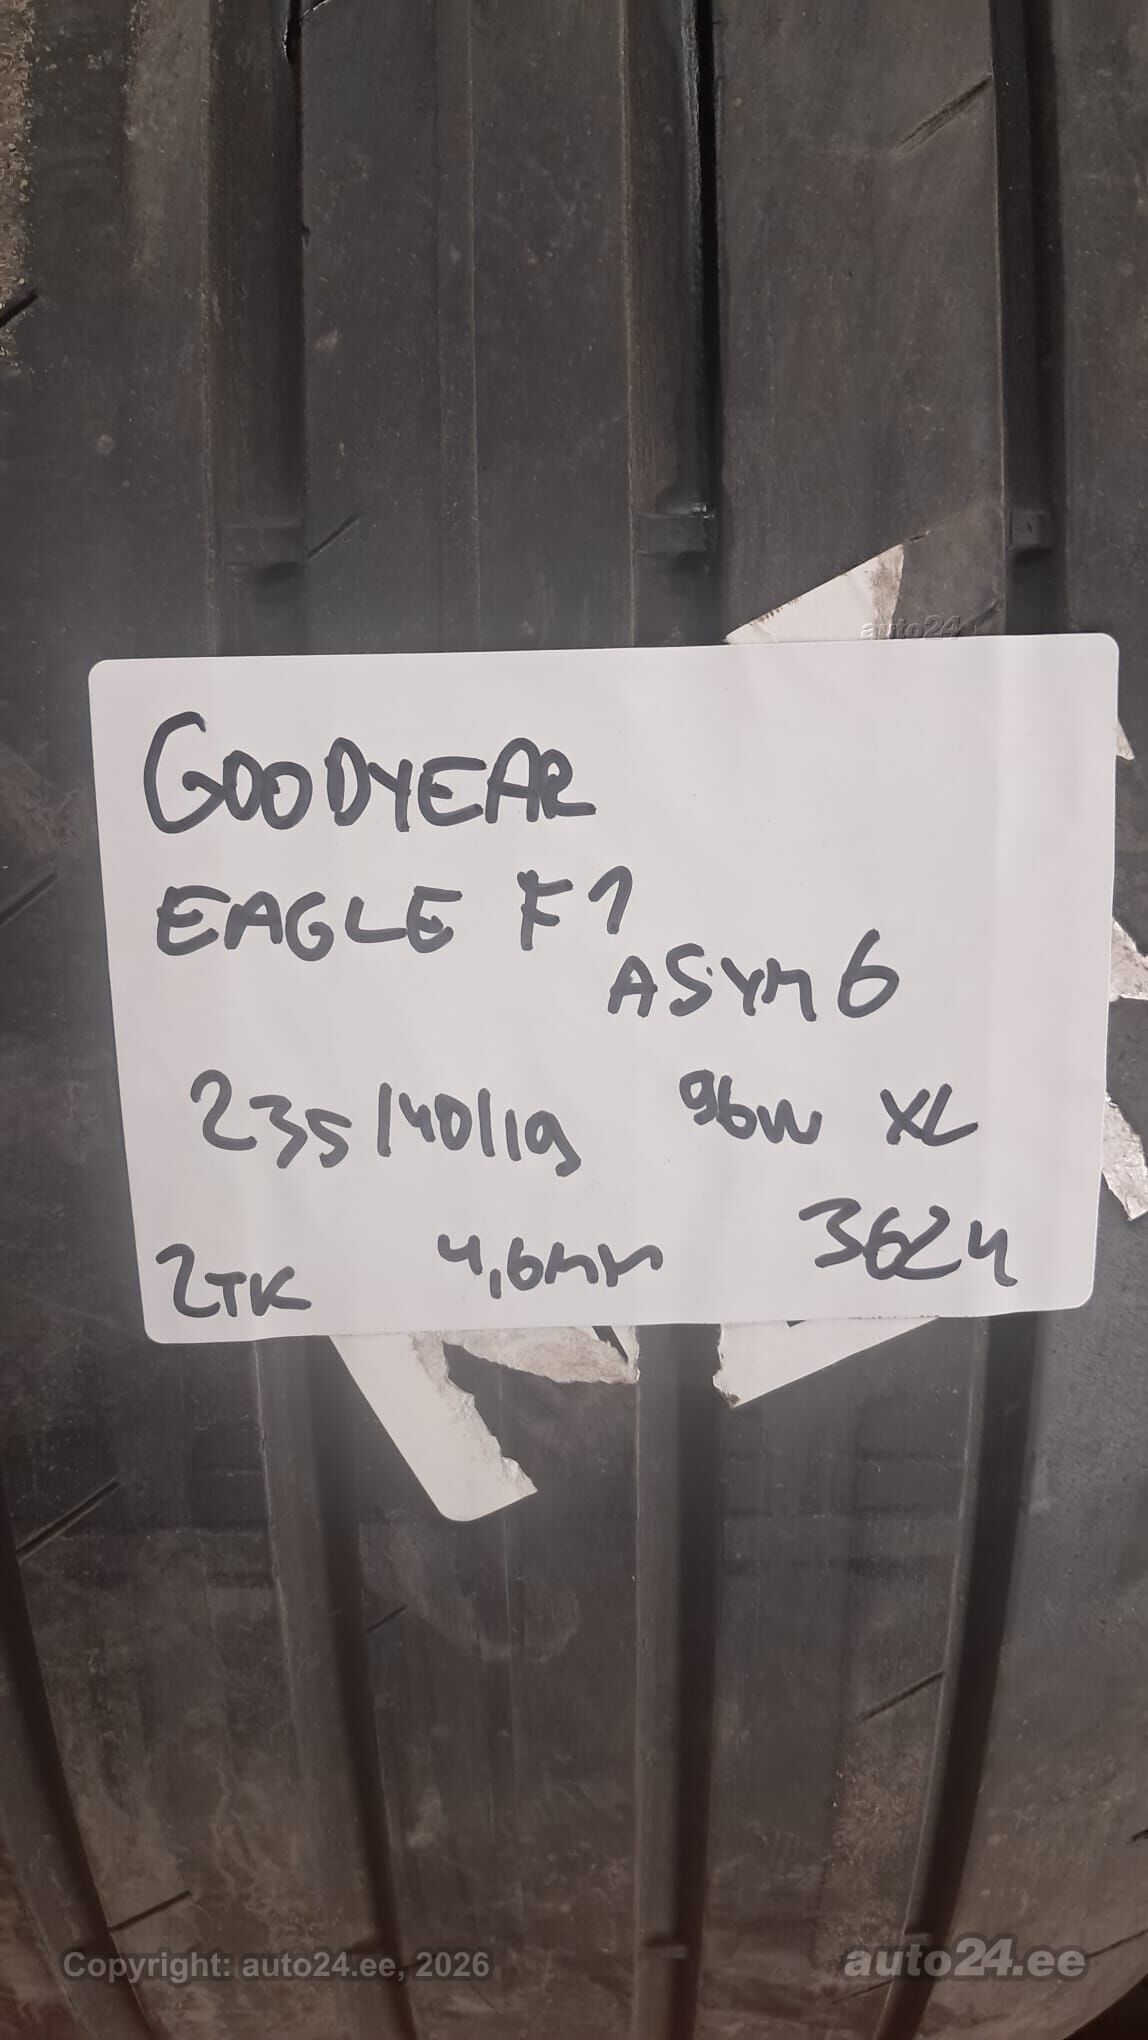 auto24
GOODYEAR
EAGLE F1
ASYM 6
235/40/19 96W XL
2TK 4,6mm 3624
Copyright: auto24.ee, 2026
auto24.ee